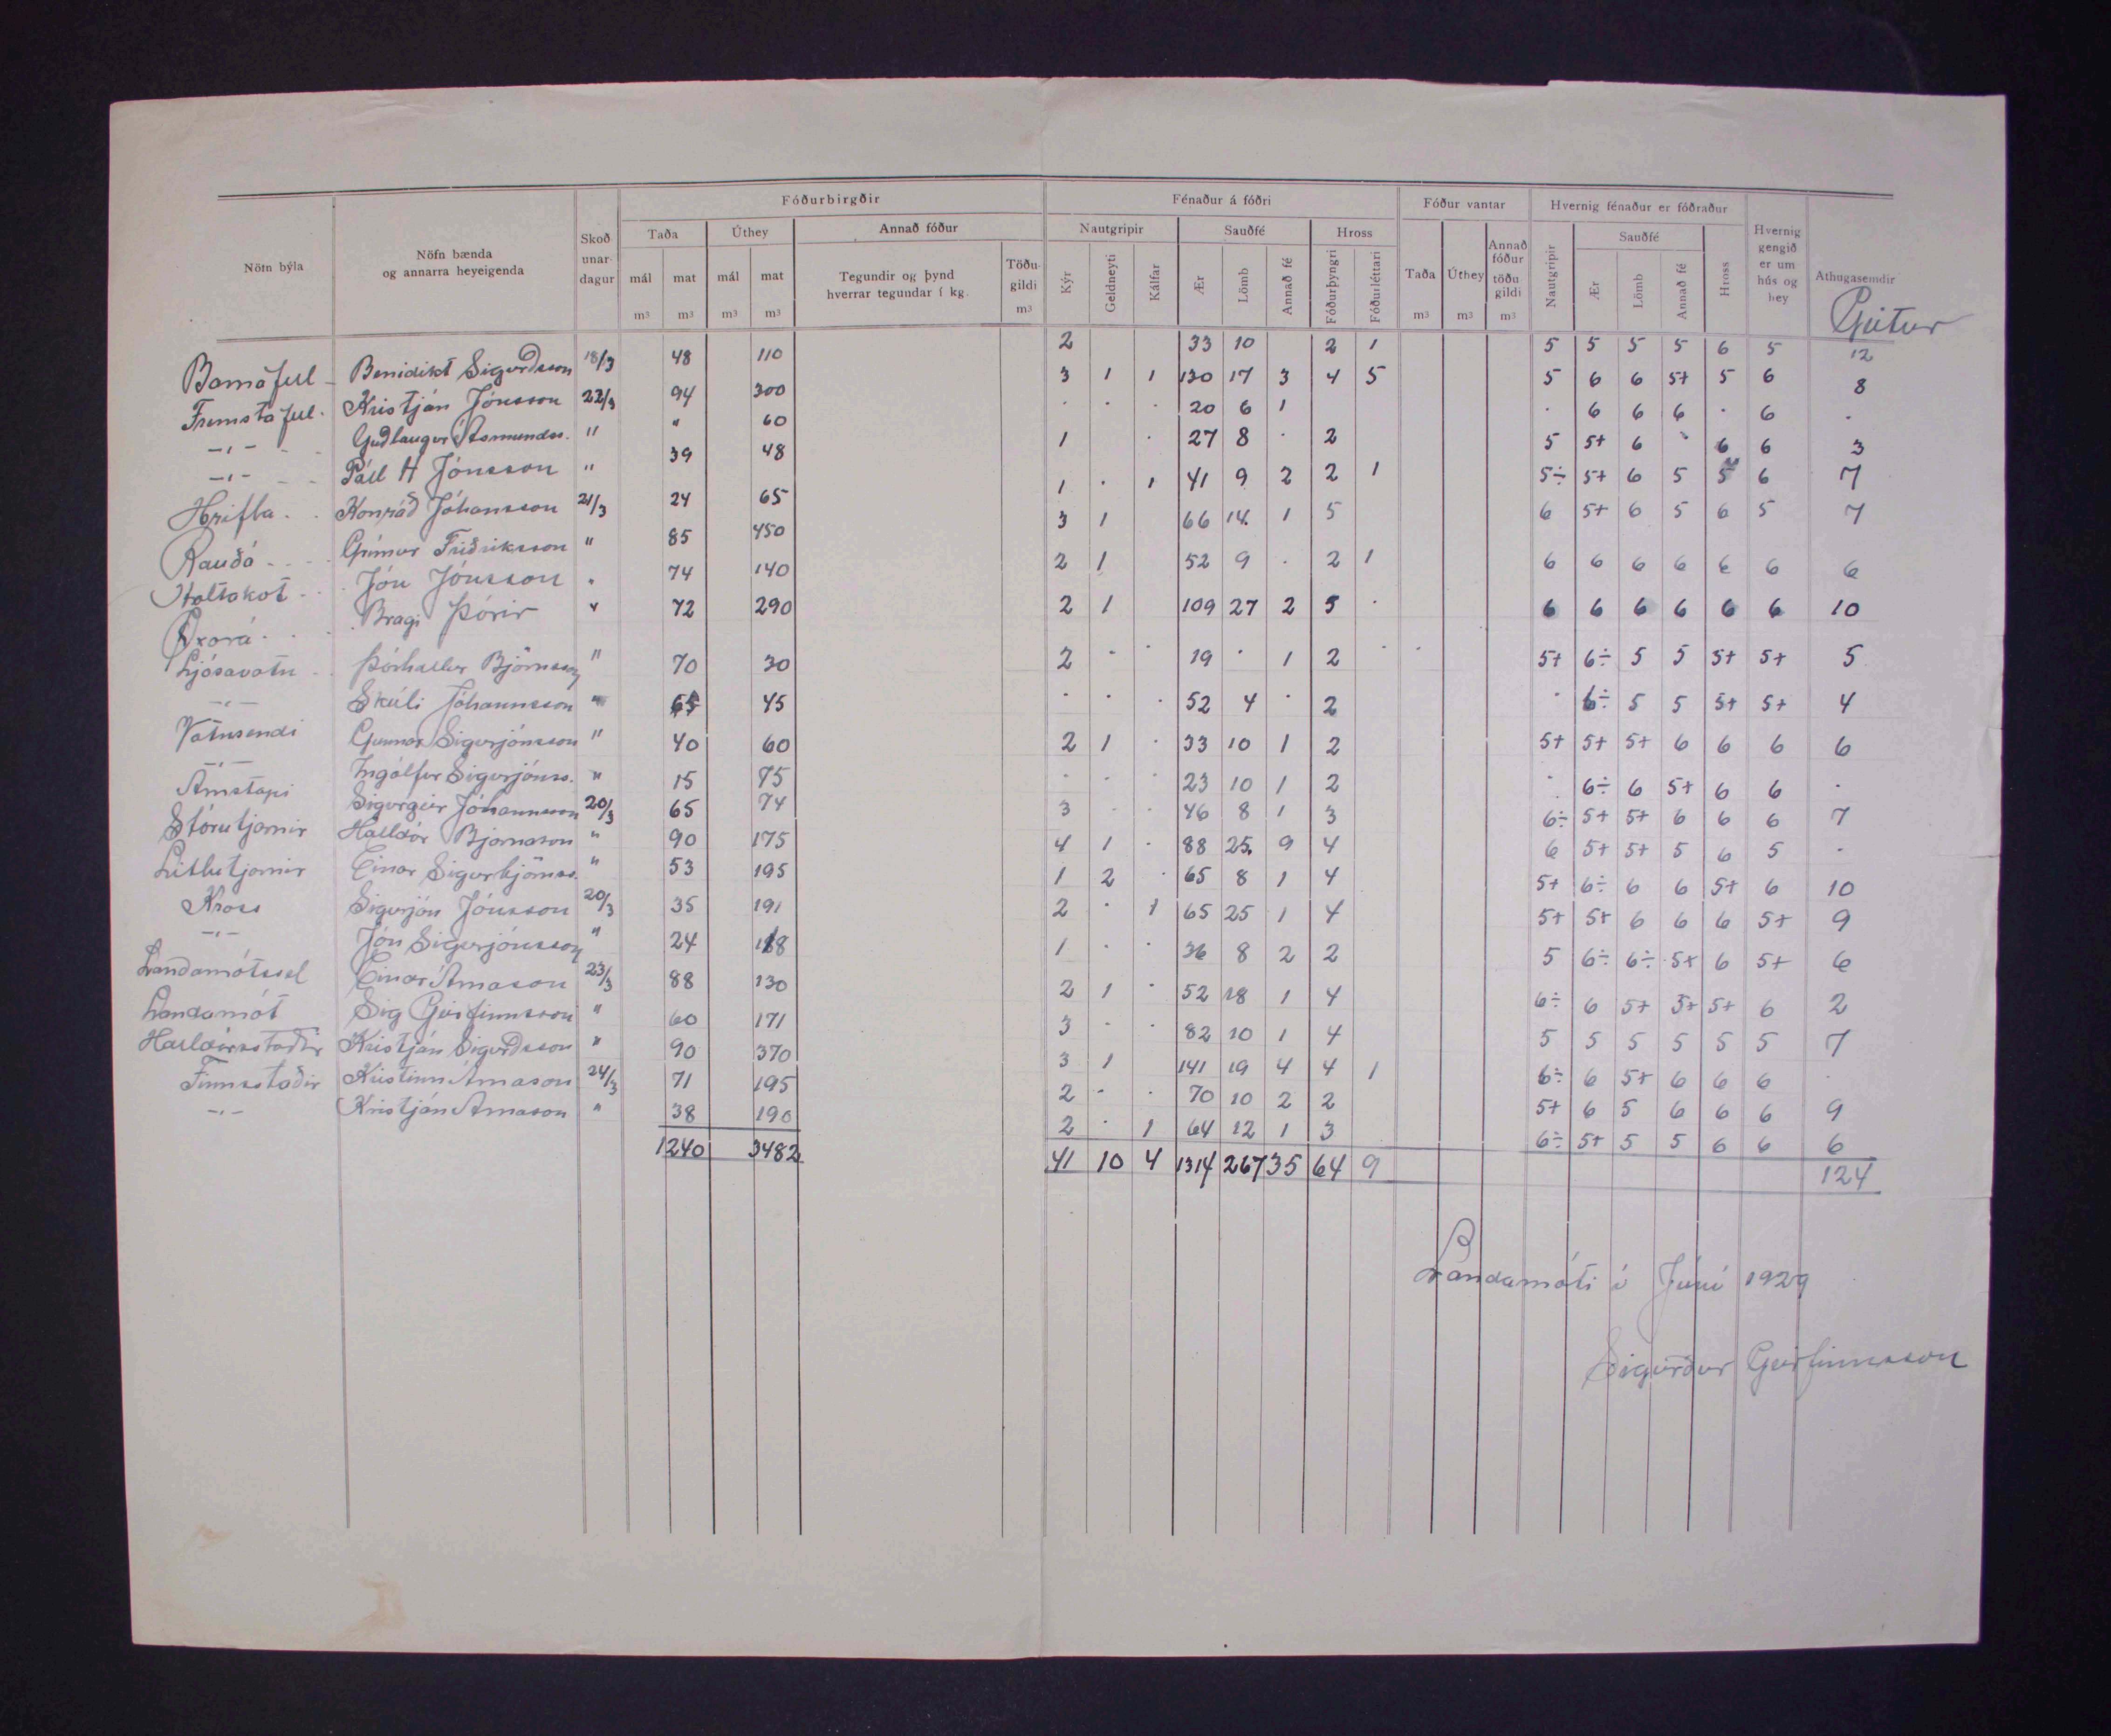 Fóðurbirgðir Fénaður á fóðri Fóður vantar Hvernig fénaður er fóðraður
Nöfn býla Nöfn bænda og annarra heyeigenda Skoðunar-dagur Taða Úthey Annað fóður Nautgripir Sauðfé Hross Taða Úthey Annað fóður töðu gildi Nautgripir Sauðfé Hross Hvernig gengið er um hús og hey Athugasemdir
mál mat mál mat Tegundir og þynd hverrar tegundar í kg. Töðu-gildi Kýr Geldneyti Kálfar Ær Lömb Annað fé Fóðurþyngri Fóðurléttari Ær Lömb Annað fé
m³ m³ m³ m³ m³ m³ m³ m³ Geitur
Barnafell Benidikt Sigurðsson 18/3 48 110 2 33 10 2 1 5 5 5 5 6 5 12
Fremstafell Kristján Jónsson 22/3 94 300 3 1 1 130 17 3 4 5 5 6 6 5+ 5 6 8
-"- Guðlaugur Ásmundss. " " 60 · · · 20 6 1 · 6 6 6 · 6 ·
-"- Páll H Jónsson " 39 48 1 · 27 8 · 2 5 5+ 6 · 6 6 3
Hrifla Konráð Jóhansson 21/3 24 65 1 · 1 41 9 2 2 1 5÷ 5+ 6 5 5 6 7
Rauðá Grímur Friðriksson " 85 450 3 1 66 14 1 5 6 5+ 6 5 6 5 7
Holtakot Jón Jónsson " 74 140 2 1 52 9 · 2 1 6 6 6 6 6 6 6
Öxará Bragi Þórir " 72 290 2 1 109 27 2 5 · 6 6 6 6 6 6 10
Ljósavatn Þórhallur Björnsson " 70 30 2 · · 19 · 1 2 · · 5+ 6÷ 5 5 5+ 5+ 5
-"- Skúli Jóhannsson " 65 45 · · · 52 4 · 2 · 6÷ 5 5 5+ 5+ 4
Vatnsendi Gunnar Sigurjónsson " 40 60 2 1 · 33 10 1 2 5+ 5+ 5+ 6 6 6 6
-"- Ingólfur Sigurjónss. " 15 75 · · · 23 10 1 2 · 6÷ 6 5+ 6 6 ·
Arnstapi Sigurgeir Jóhannsson 20/3 65 74 3 · · 46 8 1 3 6÷ 5+ 5+ 6 6 6 7
Stórutjarnir Halldór Bjarnason " 90 175 4 1 · 88 25 9 4 6 5+ 5+ 5 6 5 ·
Litlutjarnir Einar Sigurbjörnss. " 53 195 1 2 · 65 8 1 4 5+ 6÷ 6 6 5+ 6 10
Kross Sigurjón Jónsson 20/3 35 191 2 · 1 65 25 1 4 5+ 5+ 6 6 6 5+ 9
-"- Jón Sigurjónsson " 24 118 1 · · 36 8 2 2 5 6÷ 6÷ 5+ 6 5+ 6
Landamótssel Einar Árnason 23/3 88 130 2 1 · 52 18 1 4 6÷ 6 5+ 5+ 5+ 6 2
Landamót Sig Geirfinnsson " 60 171 3 · · 82 10 1 4 5 5 5 5 5 5 7
Halldórsstaðir Kristján Sigurðsson " 90 370 3 1 141 19 4 4 1 6÷ 6 5+ 6 6 6 ·
Finnsstaðir Kristinn Árnason 24/3 71 195 2 · · 70 10 2 2 5+ 6 5 6 6 6 9
-"- Kristján Árnason " 38 190 2 · 1 64 12 1 3 6÷ 5+ 5 5 6 6 6
1240 3482 41 10 4 1314 267 35 64 9 124
Landamóti í Júní 1929
Sigurður Geirfinnsson